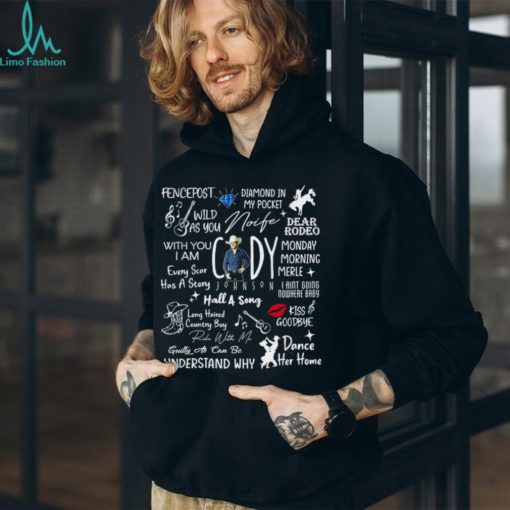 lm
Limo Fashion
FENCEPOST
DIAMOND IN
MY POCKET
WILD
AS YOU
Noife
DEAR
RODEO
WITH YOU
I AM
CODY
JOHNSON
MONDAY
MORNING
MERLE
Every Scar
Has A Story
I AINT GOING
NOWHERE BABY
Half A Song
Long Haired
Country Boy
KISS
GOODBYE
Ride With Me
Guilty As Can Be
Dance
Her Home
UNDERSTAND WHY